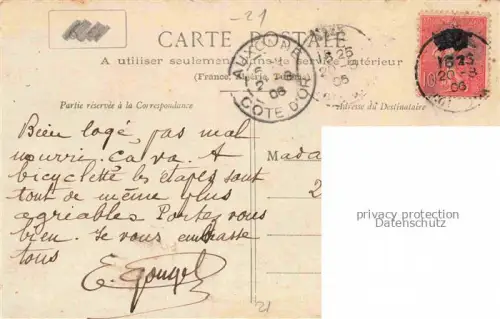 -21
CARTE POSTALE
A utiliser seulement dans le service intérieur
(France, Algérie, Tunisie)
Partie réservée à la Correspondance
Adresse du Destinataire
AUXONNE
CÔTE D'OR
15 25
20-8
06
Bien logé, pas mal
nourri. ca va. A
bicyclette les étapes sont
tout de même plus
agréables Portez vous
bien. Je vous embrasse
tous
Mada
2
privacy protection
Datenschutz
21